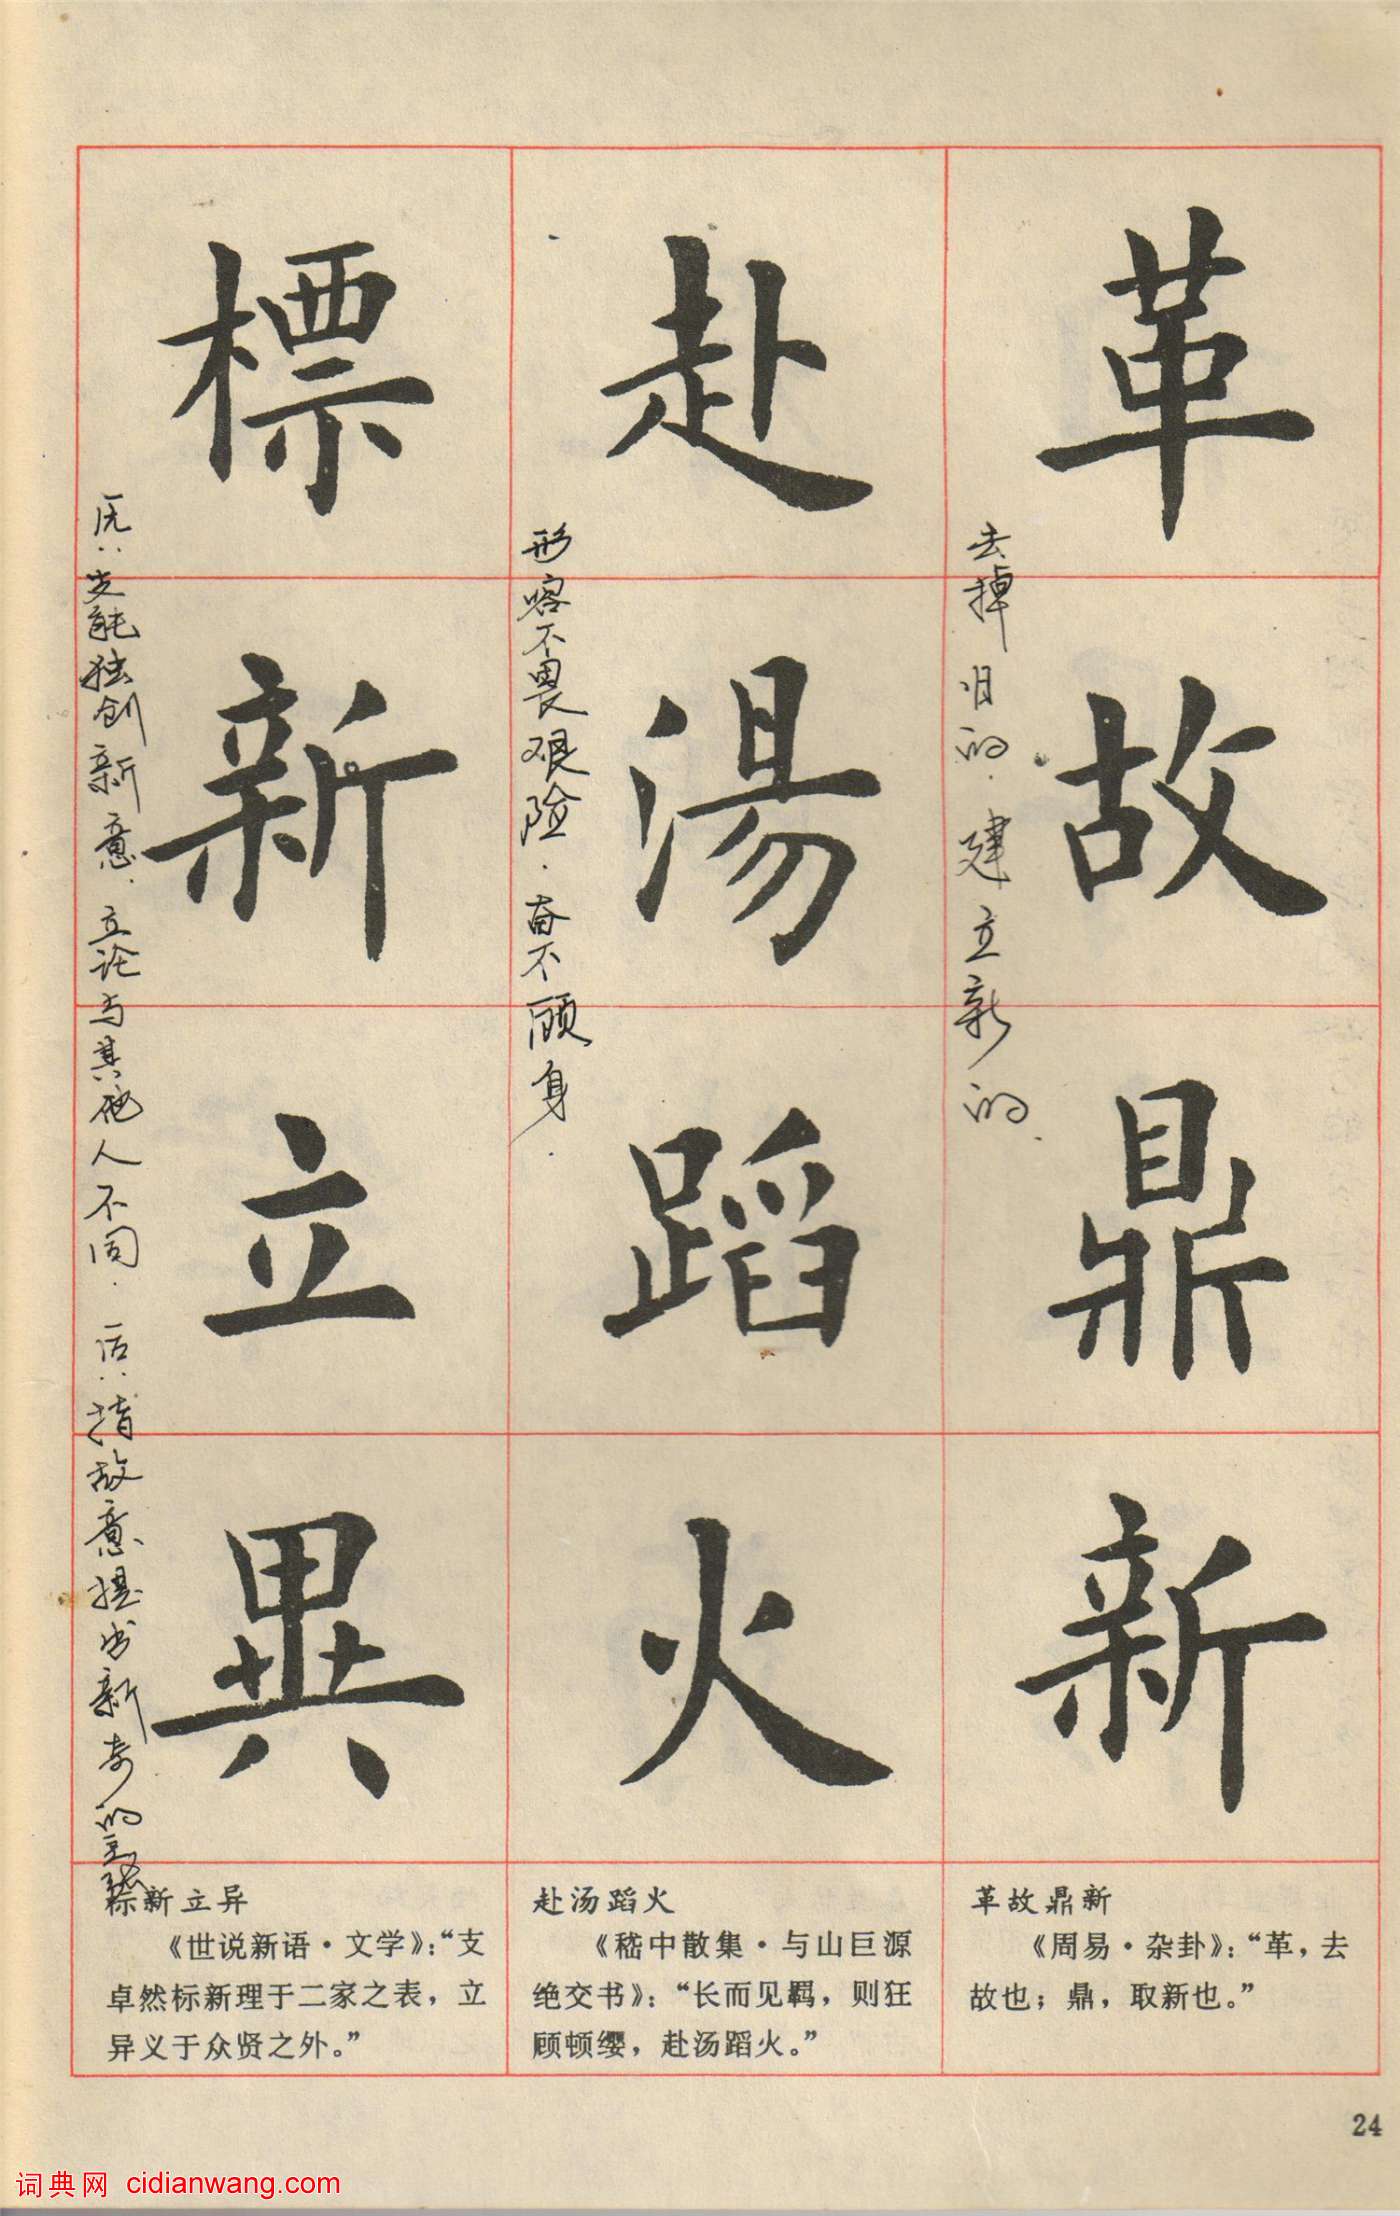 革故鼎新
去掉旧的.建立新的.
赴湯蹈火
形容不畏艰险.奋不顾身.
標新立異
原:支能独创新意.立论与其他人不同.后:指故意提出新奇的主张
革故鼎新
《周易·杂卦》:“革,去
故也;鼎,取新也。”
赴汤蹈火
《嵇中散集·与山巨源
绝交书》:“长而见羁,则狂
顾顿缨,赴汤蹈火。”
标新立异
《世说新语·文学》:“支
卓然标新理于二家之表,立
异义于众贤之外。”
24
词典网 cidianwang.com